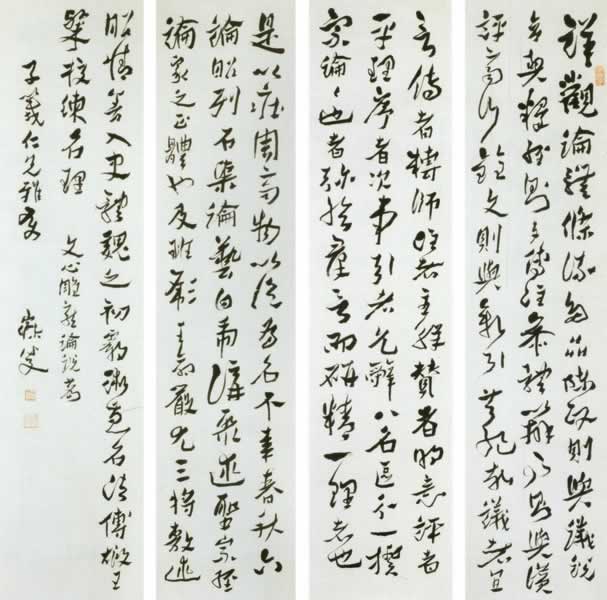 詳觀論體條流多品陳政則與議說
合契釋經則與傳注參體辨史則與讚
評齊行詮文則與敘引共紀故議者宜
言傳者轉師注者主解贊者明意評者
平理序者次事引者胤辭八名區分一揆
宗論論也者彌綸群言而研精一理者也
是以莊周齊物以論為名不韋春秋六
論昭列石渠論藝白虎講聚述聖通經
論家之正體也及班彪王命嚴尤三將敷述
昭情善入史體魏之初霸術兼名法傅嘏王
粲校練名理 文心雕龍論說篇
子義仁兄雅
叟